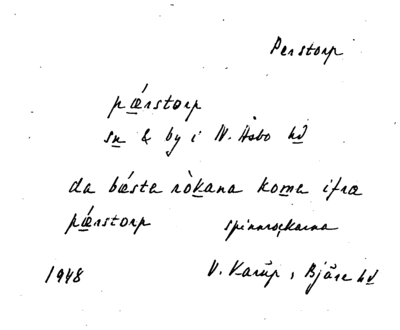 Perstorp
pǽrstorp
sn & by i N. Åsbo hd
da bǽsta ròkana koma ifra
pǽrstorp spinnrockarna
1948 V. Karup, Bjäre hd